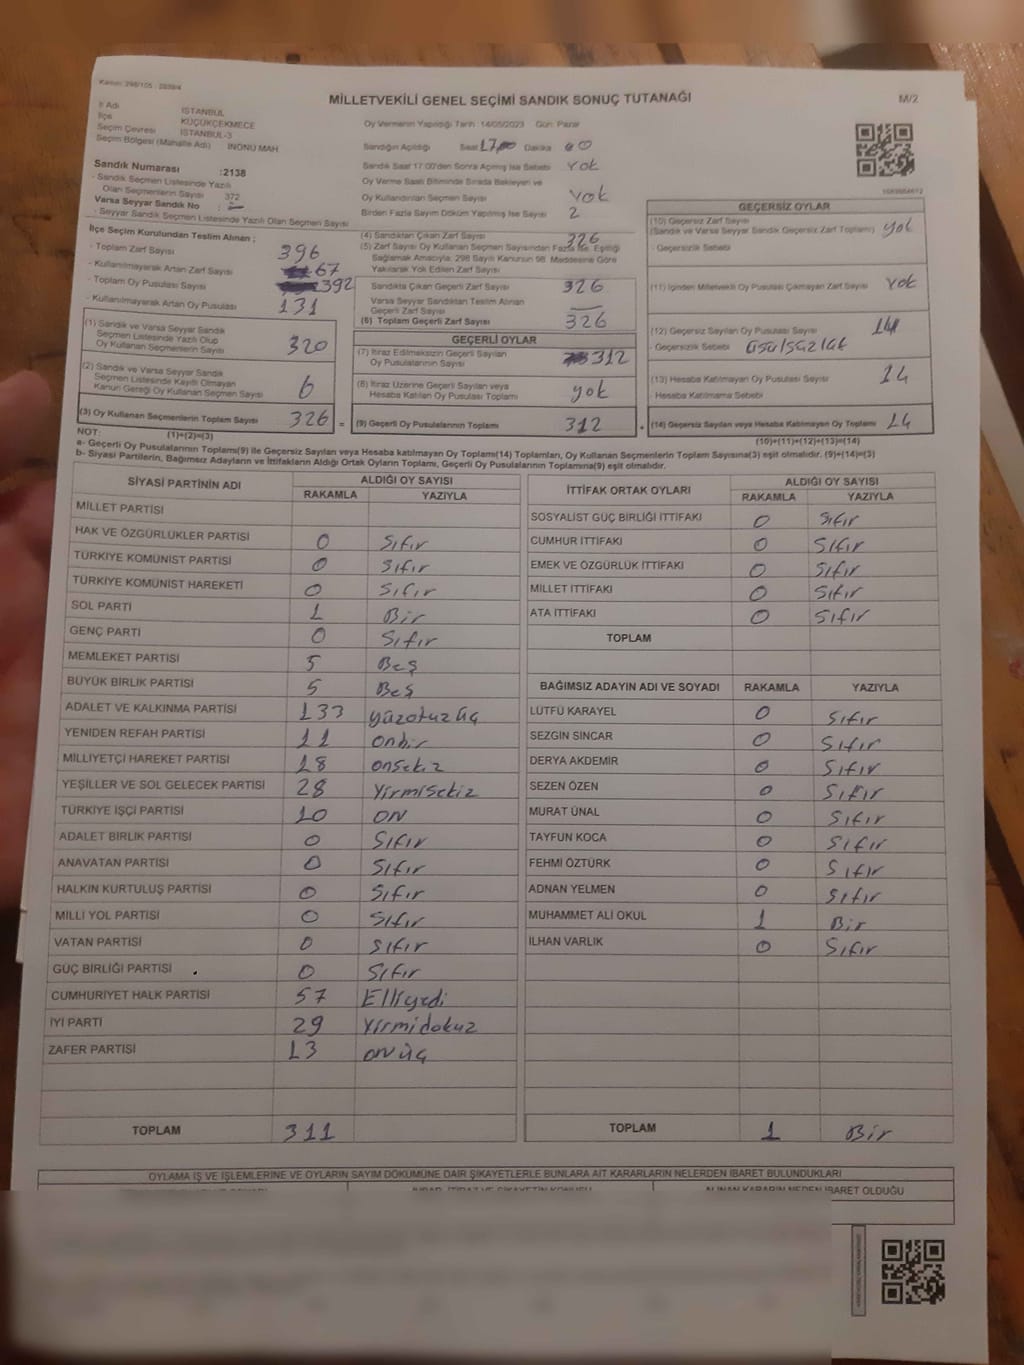 Kanun: 298/105 - 2839/4
MİLLETVEKİLİ GENEL SEÇİMİ SANDIK SONUÇ TUTANAĞI
M/2
İl Adı İSTANBUL
İlçe KÜÇÜKÇEKMECE
Seçim Çevresi İSTANBUL-3
Seçim Bölgesi (Mahalle Adı) İNÖNÜ MAH
Oy Vermenin Yapıldığı Tarih 14/05/2023 Gün: Pazar
Sandığın Açıldığı Saat 17,00 Dakika 00
Sandık Saat 17:00'den Sonra Açılmış İse Sebebi Yok
Oy Verme Saati Bitiminde Sırada Bekleyen ve
Oy Kullandırılan Seçmen Sayısı Yok
Birden Fazla Sayım Döküm Yapılmış İse Sayısı 2
Sandık Numarası :2138
- Sandık Seçmen Listesinde Yazılı
Olan Seçmenlerin Sayısı 372
Varsa Seyyar Sandık No : -
- Seyyar Sandık Seçmen Listesinde Yazılı Olan Seçmen Sayısı
İlçe Seçim Kurulundan Teslim Alınan ;
- Toplam Zarf Sayısı 396
- Kullanılmayarak Artan Zarf Sayısı 67
- Toplam Oy Pusulası Sayısı 392
- Kullanılmayarak Artan Oy Pusulası 131
(1) Sandık ve Varsa Seyyar Sandık
Seçmen Listesinde Yazılı Olup
Oy Kullanan Seçmenlerin Sayısı 320
(2) Sandık ve Varsa Seyyar Sandık
Seçmen Listesinde Kayıtlı Olmayan
Kanun Gereği Oy Kullanan Seçmen Sayısı 6
(3) Oy Kullanan Seçmenlerin Toplam Sayısı 326 =
(4) Sandıktan Çıkan Zarf Sayısı 326
(5) Zarf Sayısı Oy Kullanan Seçmen Sayısından Fazla İse, Eşitliği
Sağlamak Amacıyla, 298 Sayılı Kanunun 98. Maddesine Göre
Yakılarak Yok Edilen Zarf Sayısı
Sandıkta Çıkan Geçerli Zarf Sayısı 326
Varsa Seyyar Sandıktan Teslim Alınan
Geçerli Zarf Sayısı —
(6) Toplam Geçerli Zarf Sayısı 326
GEÇERLİ OYLAR
(7) İtiraz Edilmeksizin Geçerli Sayılan
Oy Pusulalarının Sayısı 312
(8) İtiraz Üzerine Geçerli Sayılan veya
Hesaba Katılan Oy Pusulası Toplamı yok
(9) Geçerli Oy Pusulalarının Toplamı 312 +
GEÇERSİZ OYLAR
(10) Geçersiz Zarf Sayısı
(Sandık ve Varsa Seyyar Sandık Geçersiz Zarf Toplamı) yok
- Geçersizlik Sebebi
(11) İçinden Milletvekili Oy Pusulası Çıkmayan Zarf Sayısı Yok
(12) Geçersiz Sayılan Oy Pusulası Sayısı 14
- Geçersizlik Sebebi
(13) Hesaba Katılmayan Oy Pusulası Sayısı 14
- Hesaba Katılmama Sebebi
(14) Geçersiz Sayılan veya Hesaba Katılmayan Oy Toplamı 14
NOT: (1)+(2)=(3)
(10)+(11)+(12)+(13)=(14)
a- Geçerli Oy Pusulaları Toplamı(9) ile Geçersiz Sayılan veya Hesaba katılmayan Oy Toplamı(14) Toplamları, Oy Kullanan Seçmenlerin Toplam Sayısına(3) eşit olmalıdır. (9)+(14)=(3)
b- Siyasi Partilerin, Bağımsız Adayların ve İttifakların Aldığı Ortak Oyların Toplamı, Geçerli Oy Pusulalarının Toplamına(9) eşit olmalıdır.
SİYASİ PARTİNİN ADI ALDIĞI OY SAYISI
RAKAMLA YAZIYLA
MİLLET PARTİSİ
HAK VE ÖZGÜRLÜKLER PARTİSİ 0 Sıfır
TÜRKİYE KOMÜNİST PARTİSİ 0 Sıfır
TÜRKİYE KOMÜNİST HAREKETİ 0 Sıfır
SOL PARTİ 1 Bir
GENÇ PARTİ 0 Sıfır
MEMLEKET PARTİSİ 5 Beş
BÜYÜK BİRLİK PARTİSİ 5 Beş
ADALET VE KALKINMA PARTİSİ 133 yüzotuzüç
YENİDEN REFAH PARTİSİ 11 Onbir
MİLLİYETÇİ HAREKET PARTİSİ 18 onsekiz
YEŞİLLER VE SOL GELECEK PARTİSİ 28 Yirmisekiz
TÜRKİYE İŞÇİ PARTİSİ 10 ON
ADALET BİRLİK PARTİSİ 0 Sıfır
ANAVATAN PARTİSİ 0 Sıfır
HALKIN KURTULUŞ PARTİSİ 0 Sıfır
MİLLİ YOL PARTİSİ 0 Sıfır
VATAN PARTİSİ 0 Sıfır
GÜÇ BİRLİĞİ PARTİSİ 0 Sıfır
CUMHURİYET HALK PARTİSİ 57 Elliyedi
İYİ PARTİ 29 Yirmidokuz
ZAFER PARTİSİ 13 onüç
TOPLAM 311
İTTİFAK ORTAK OYLARI ALDIĞI OY SAYISI
RAKAMLA YAZIYLA
SOSYALİST GÜÇ BİRLİĞİ İTTİFAKI 0 Sıfır
CUMHUR İTTİFAKI 0 Sıfır
EMEK VE ÖZGÜRLÜK İTTİFAKI 0 Sıfır
MİLLET İTTİFAKI 0 Sıfır
ATA İTTİFAKI 0 Sıfır
TOPLAM
BAĞIMSIZ ADAYIN ADI VE SOYADI RAKAMLA YAZIYLA
LÜTFÜ KARAYEL 0 Sıfır
SEZGİN SİNCAR 0 Sıfır
DERYA AKDEMİR 0 Sıfır
SEZEN ÖZEN 0 Sıfır
MURAT ÜNAL 0 Sıfır
TAYFUN KOCA 0 Sıfır
FEHMİ ÖZTÜRK 0 Sıfır
ADNAN YELMEN 0 Sıfır
MUHAMMET ALİ OKUL 1 Bir
İLHAN VARLIK 0 Sıfır
TOPLAM 1 Bir
OYLAMA İŞ VE İŞLEMLERİNE VE OYLARIN SAYIM DÖKÜMÜNE DAİR ŞİKAYETLERLE BUNLARA AİT KARARLARIN NELERDEN İBARET BULUNDUKLARI
ALINAN KARARIN NEDEN İBARET OLDUĞU